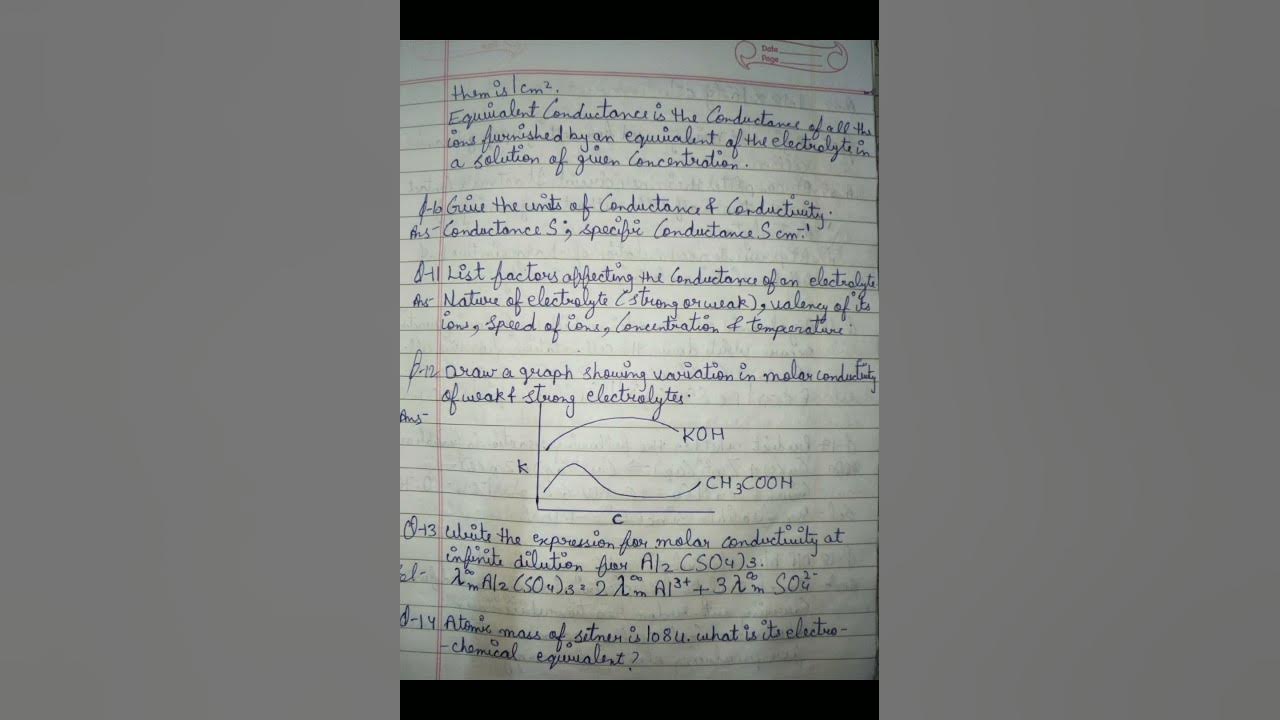 Date
Page
them is 1cm².
Equivalent Conductance is the Conductance of all the
ions furnished by an equivalent of the electrolyte in
a solution of given Concentration.
Q-10 Give the units of Conductance & Conductivity.
Ans- Conductance S; specific Conductance S cm⁻¹
Q-11 List factors affecting the Conductance of an electrolyte
Ans Nature of electrolyte (strong or weak), valency of its
ions, speed of ions, Concentration & temperature.
Q-12 Draw a graph showing variation in molar conductivity
of weak & strong electrolytes.
Ans-
KOH
K
CH₃COOH
C
Q-13 Write the expression for molar conductivity at
infinite dilution for Al₂(SO₄)₃.
Sol- λ∞m Al₂(SO₄)₃ = 2 λ∞m Al³⁺ + 3 λ∞m SO₄²⁻
Q-14 Atomic mass of is 108u. what is its electro-
-chemical equivalent?